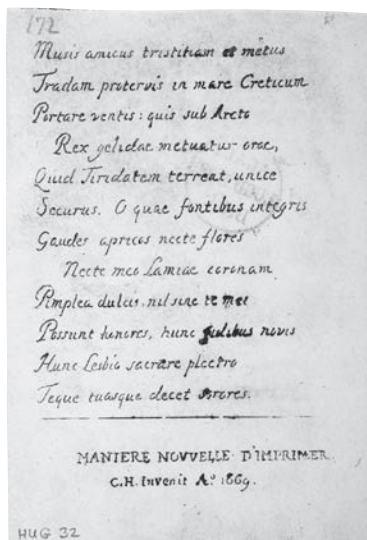 172
Musis amicus tristitiam et metus
Tradam protervis in mare Creticum
Portare ventis: quis sub Arcto
Rex gelidae metuatur orae,
Quid Tiridatem terreat, unice
Securus. O quae fontibus integris
Gaudes apricos necte flores
Necte meo Lamiae coronam
Pimplea dulcis. nil sine te mei
Possunt honores, hunc fidibus novis
Hunc Lesbio sacrare plectro
Teque tuasque decet sorores.
MANIERE NOVVELLE D'IMPRIMER.
C.H. Invenit Aº. 1669.
HUG 32